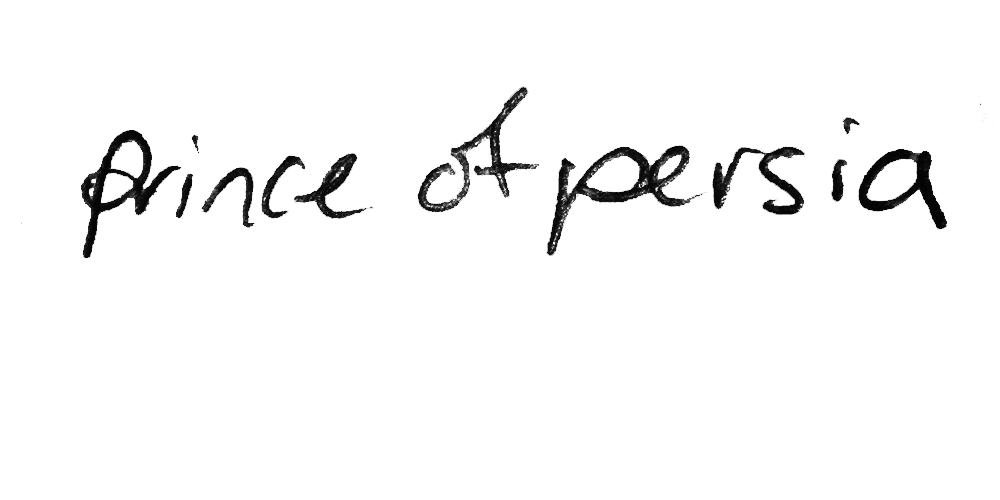 prince of persia